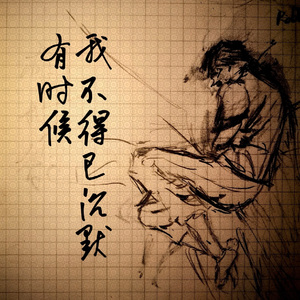 有时候
我不得已沉默